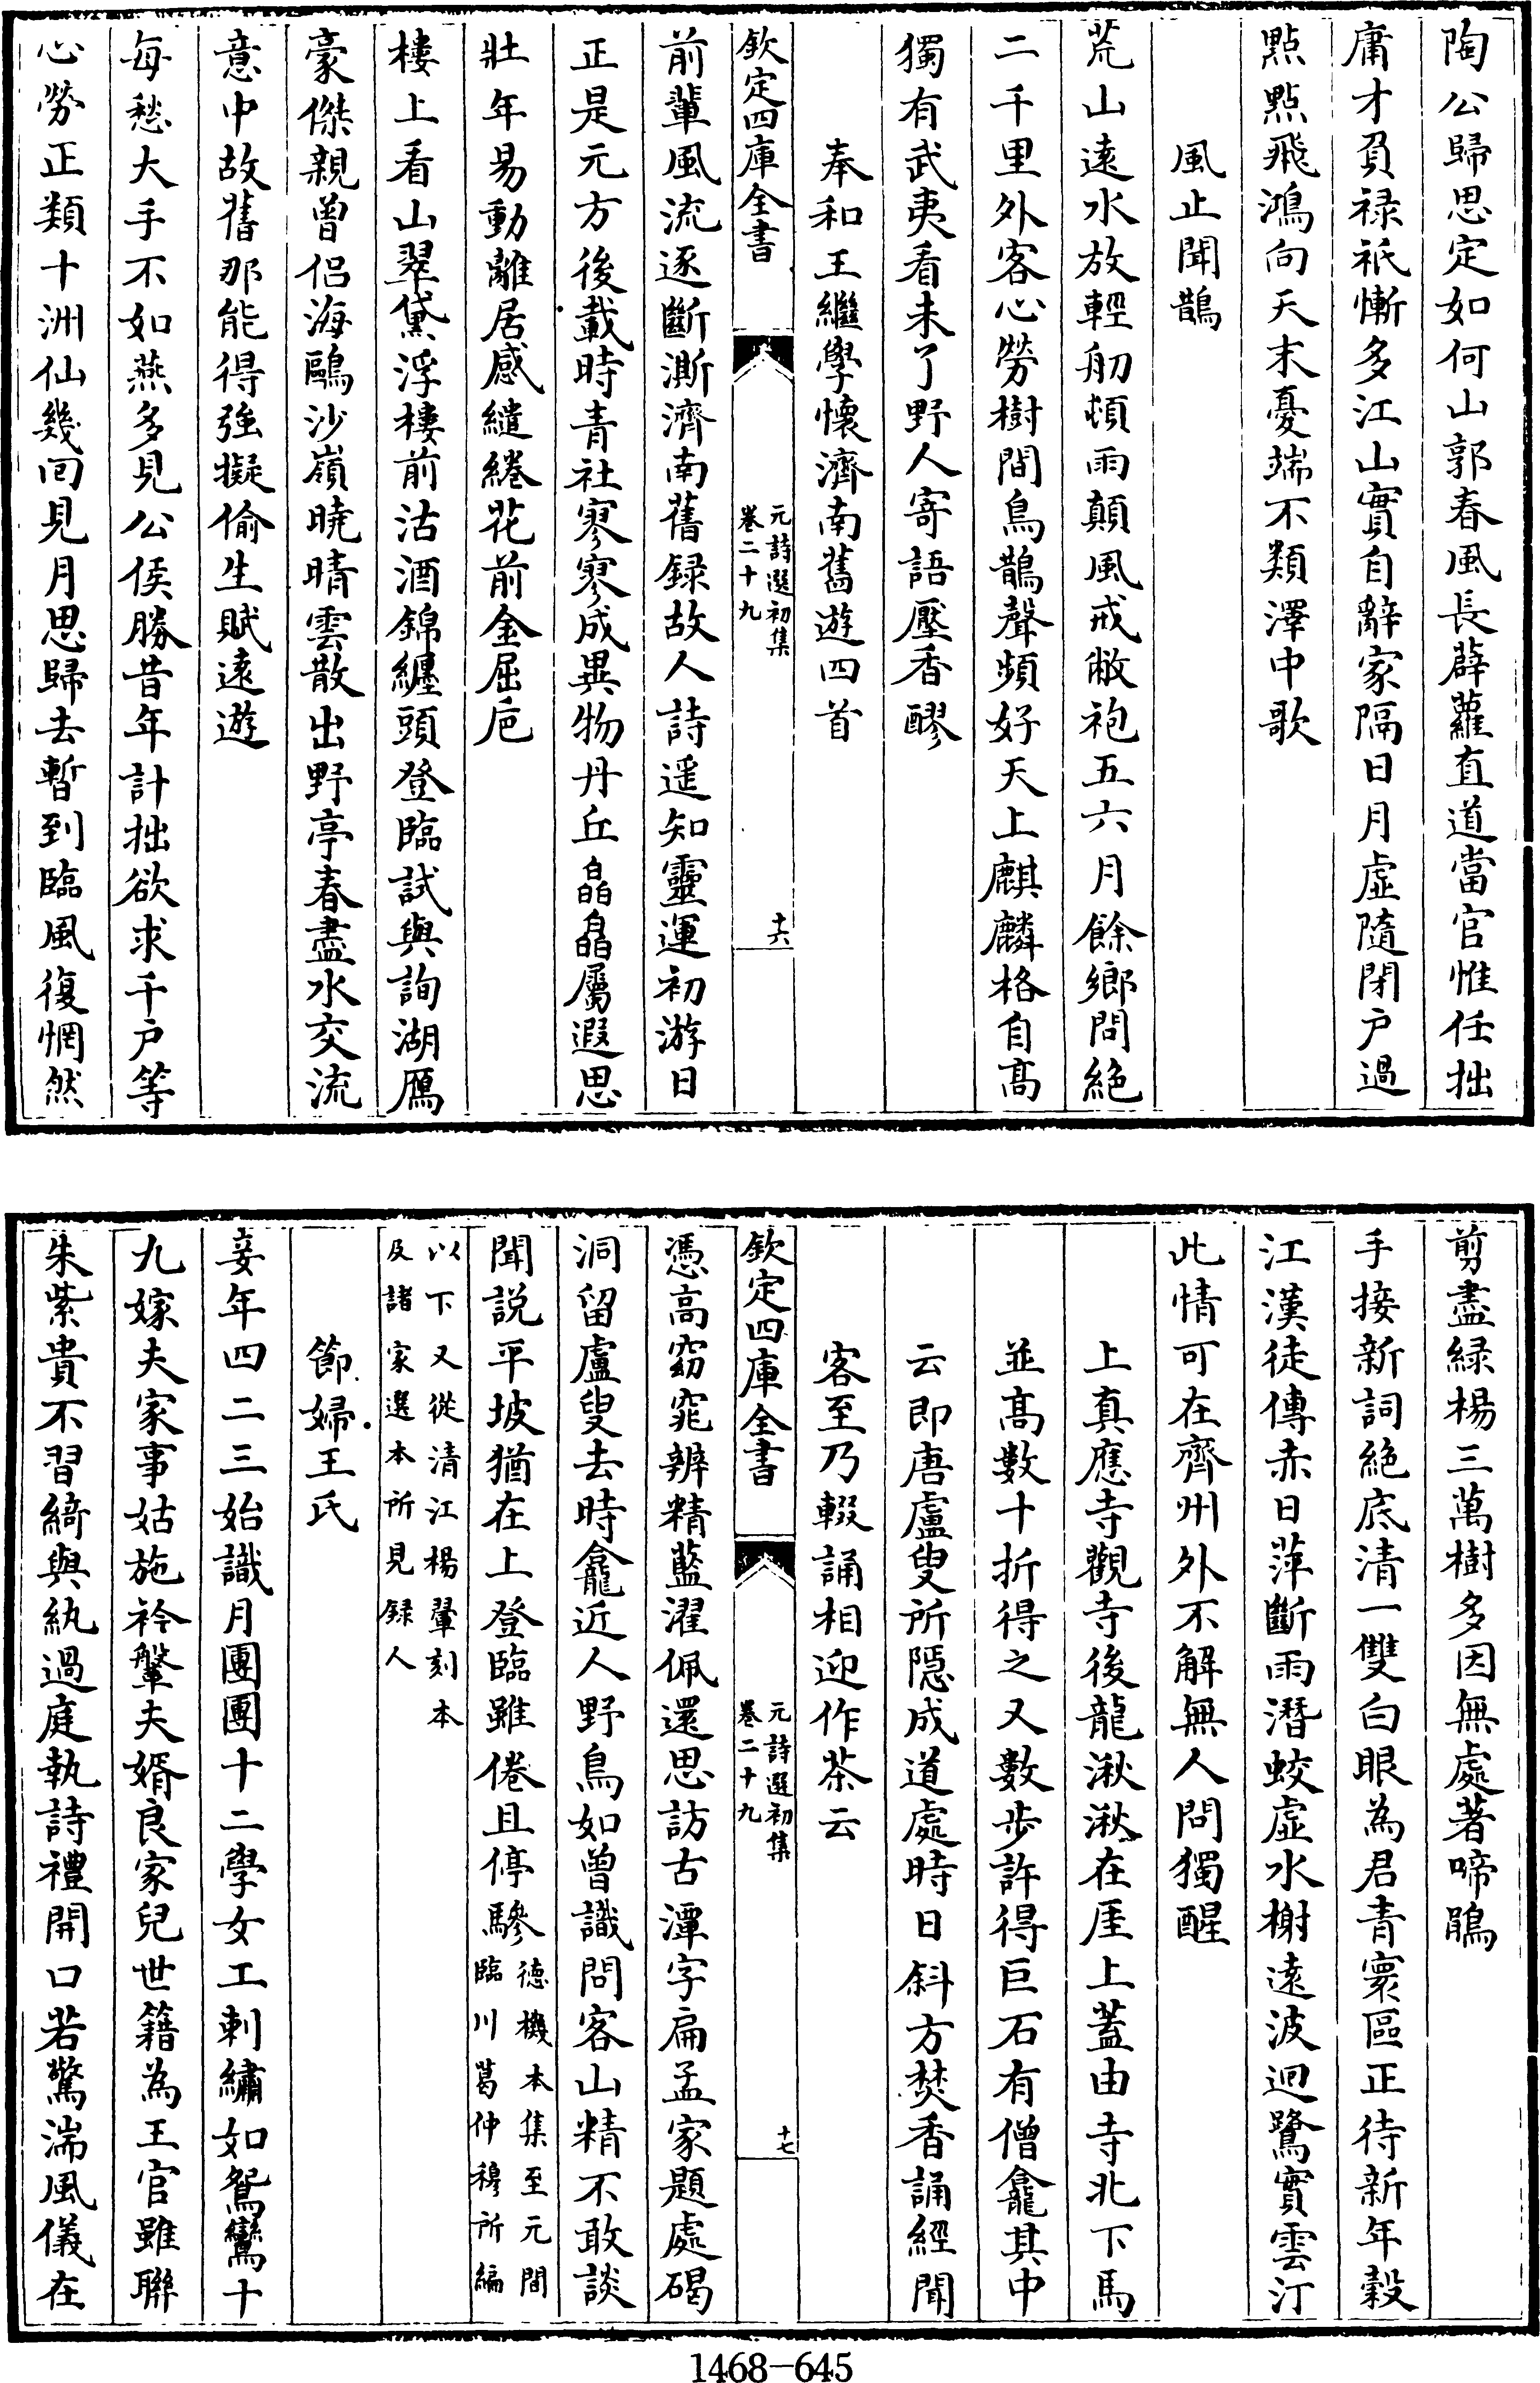 陶公歸思定如何山郭春風長薜蘿直道當官惟任拙
庸才負禄祇慚多江山實自辭家隔日月虚隨閉户過
點點飛鴻向天末憂端不類澤中歌
風止聞鵲
荒山遠水放輕舠頓雨顛風戒敝袍五六月餘鄉問絶
二千里外客心勞樹間鳥鵲聲頻好天上麒麟格自髙
獨有武夷看未了野人寄語壓香醪
奉和王繼學懷濟南舊遊四首
欽定四庫全書
元詩選初集
卷二十九
十六
前輩風流逐斷澌濟南舊録故人詩遥知靈運初游日
正是元方後載時青社寥寥成異物丹丘皛皛屬遐思
壯年易動離居感繾綣花前金屈巵
樓上看山翠黛浮樓前沽酒錦纏頭登臨試與詢湖鴈
豪傑親曾侣海鷗沙嶺曉晴雲散出野亭春盡水交流
意中故舊那能得強擬偷生賦遠遊
每愁大手不如燕多見公侯勝昔年計拙欲求千户等
心勞正類十洲仙幾回見月思歸去暫到臨風復惘然
剪盡緑楊三萬樹多因無處著啼鵑
手接新詞絶底清一雙白眼為君青寰區正待新年穀
江漢徒傳赤日萍斷雨潛蛟虚水榭遠波迴鷺實雲汀
此情可在齊州外不解無人問獨醒
上真應寺觀寺後龍湫湫在厓上蓋由寺北下馬
並髙數十折得之又數步許得巨石有僧龕其中
云即唐盧叟所隱成道處時日斜方焚香誦經聞
客至乃輟誦相迎作茶云
欽定四庫全書
元詩選初集
卷二十九
十七
憑高窈窕辨精藍濯佩還思訪古潭字扁孟家題處碣
洞留盧叟去時龕近人野鳥如曾識問客山精不敢談
聞説平坡猶在上登臨雖倦且停驂德機本集至元間
臨川葛仲穆所編
以下又從清江楊翬刻本
及諸家選本所見録人
節婦王氏
妾年四二三始識月團團十二學女工刺繡如鴛鸞十
九嫁夫家事姑施衿鞶夫婿良家兒世籍為王官雖聯
朱紫貴不習綺與紈過庭執詩禮開口若驚湍風儀在
1468-645